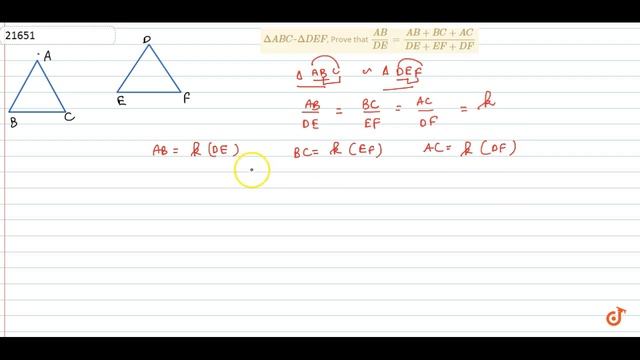 21651
ΔABC-ΔDEF, Prove that AB/DE = (AB + BC + AC)/(DE + EF + DF)
A
B C
D
E F
Δ ABC ~ Δ DEF
AB/DE = BC/EF = AC/DF = k
AB = k (DE) BC = k (EF) AC = k (DF)